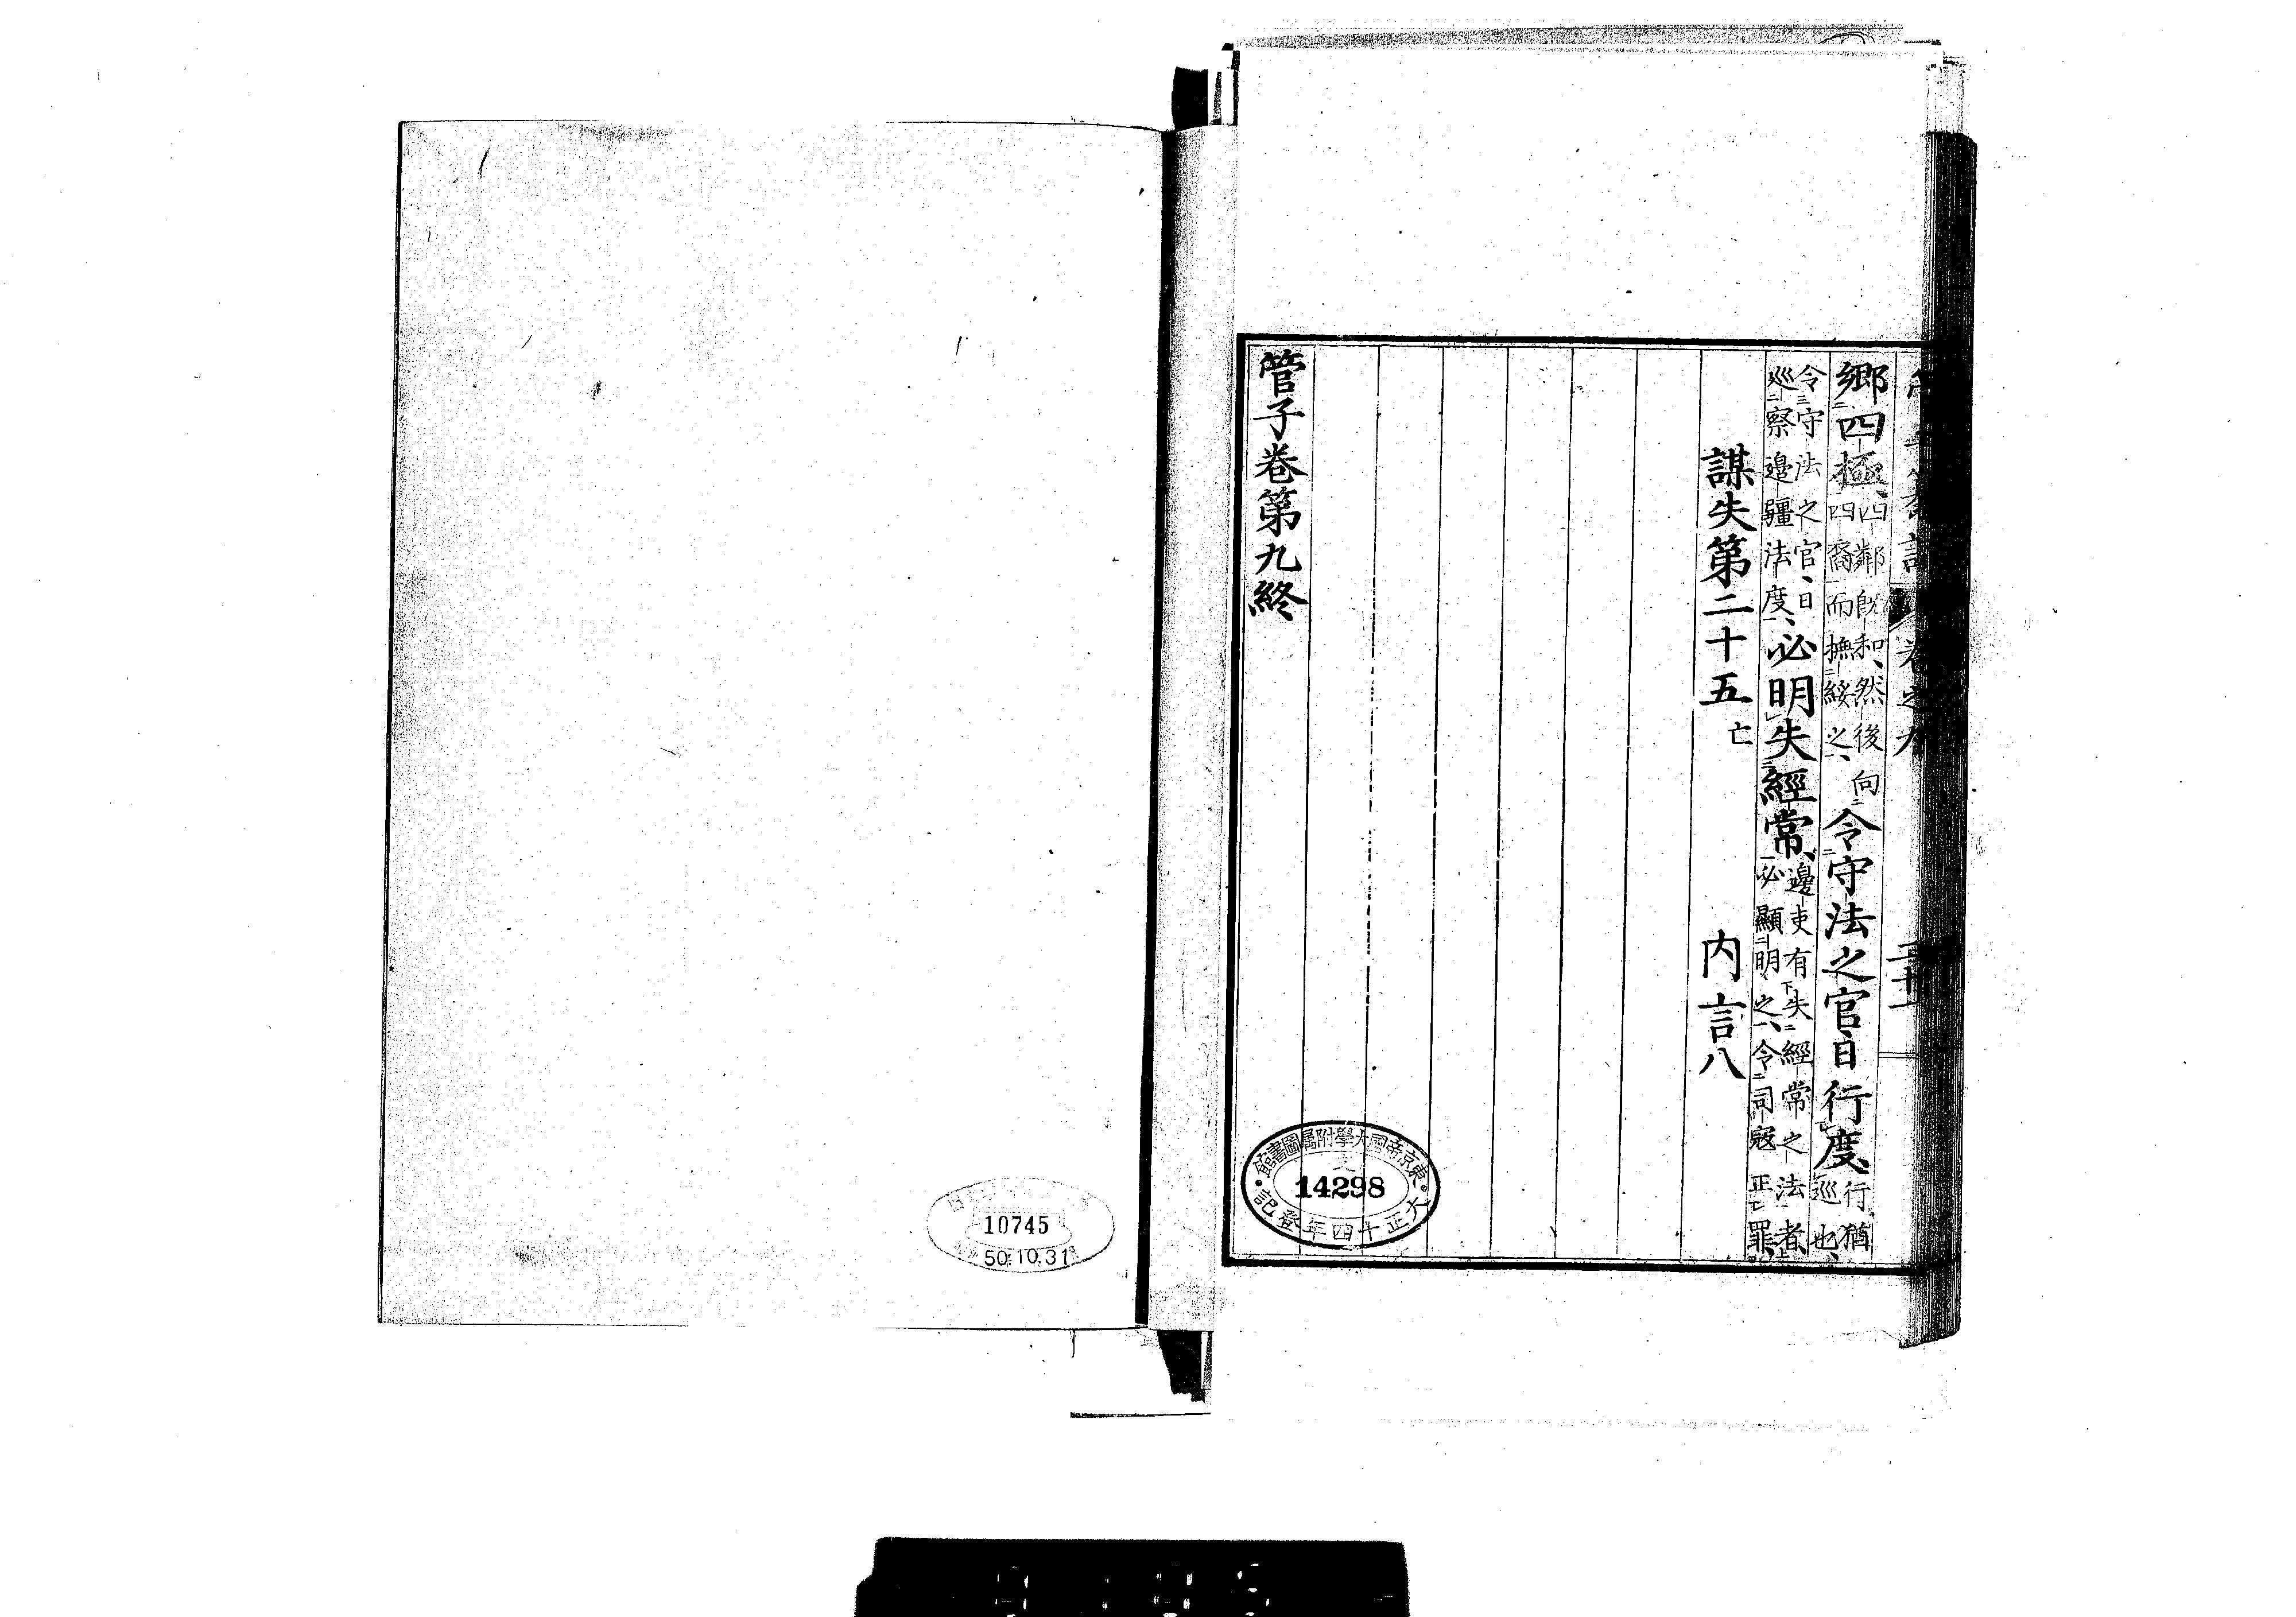 鄉四極、四鄰既和、然後向四裔而撫綏之、令守法之官、日行度、行猶巡也、
令守法之官、日巡察邊疆法度、必明失經常、邊吏有失經常之法者、必顯明之、令司寇正罪、
謀失第二十五亡 内言八
管子卷第九終
東京帝國大學附屬圖書館
14298
大正十四年登記
10745
50.10.31